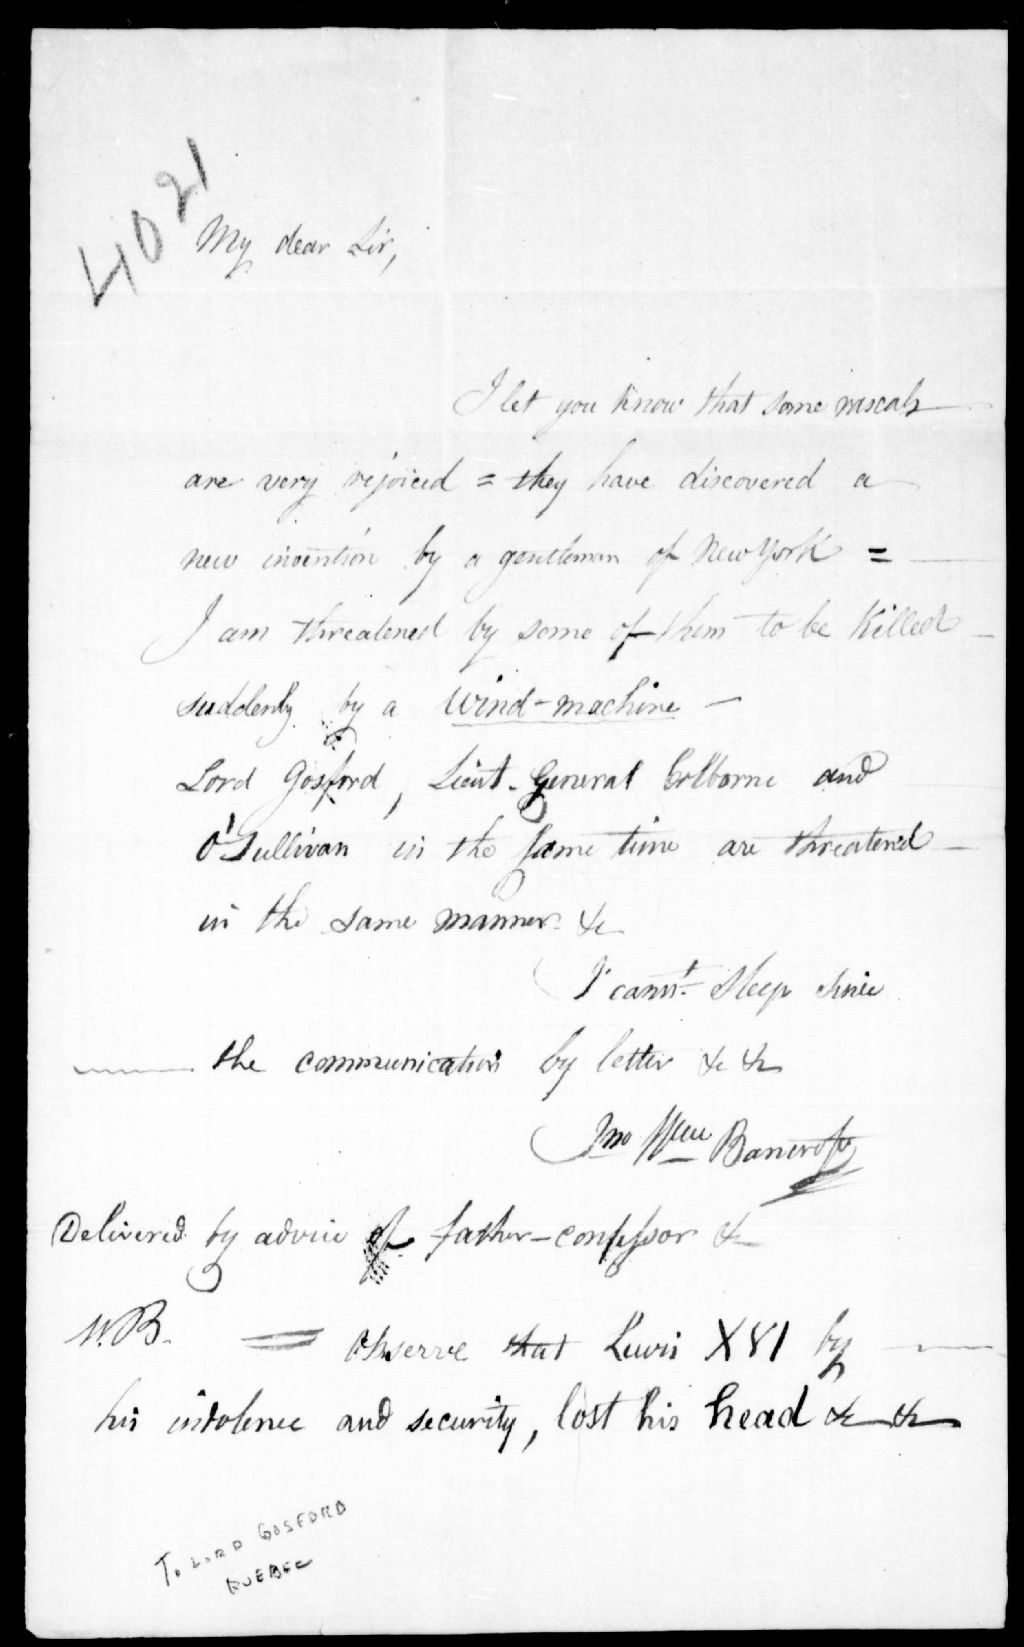 4021
My dear Sir,
I let you know that some rascals
are very rejoiced = they have discovered a
new invention by a gentleman of New York =
I am threatened by some of them to be killed
suddenly by a wind-machine —
Lord Gosford, Lieut. General Colborne and
O'Sullivan in the same time are threatened
in the same manner &c
I cann't sleep since
the communication by letter &c &c
Jno Wm Bancroft
Delivered by advice of father-confessor &c
N.B. = Observe that Lewis XVI by
his indolence and security, lost his head &c &c
To LORD GOSFORD
QUEBEC